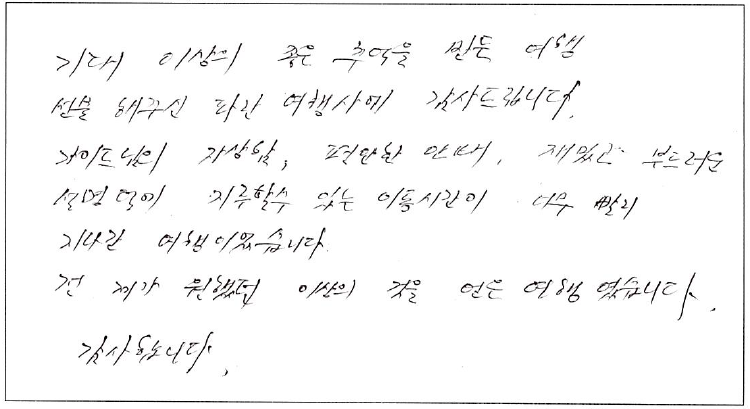 기대 이상의 좋은 추억을 만든 여행
선물 해주신 파란 여행사에 감사드립니다.
가이드님의 자상함, 편안한 안내, 재밌고 부드러운
설명 덕에 지루할수 있는 이동시간이 너무 빨리
지나간 여행이었습니다.
전 제가 원했던 이상의 것을 얻은 여행 였습니다.
감사합니다.